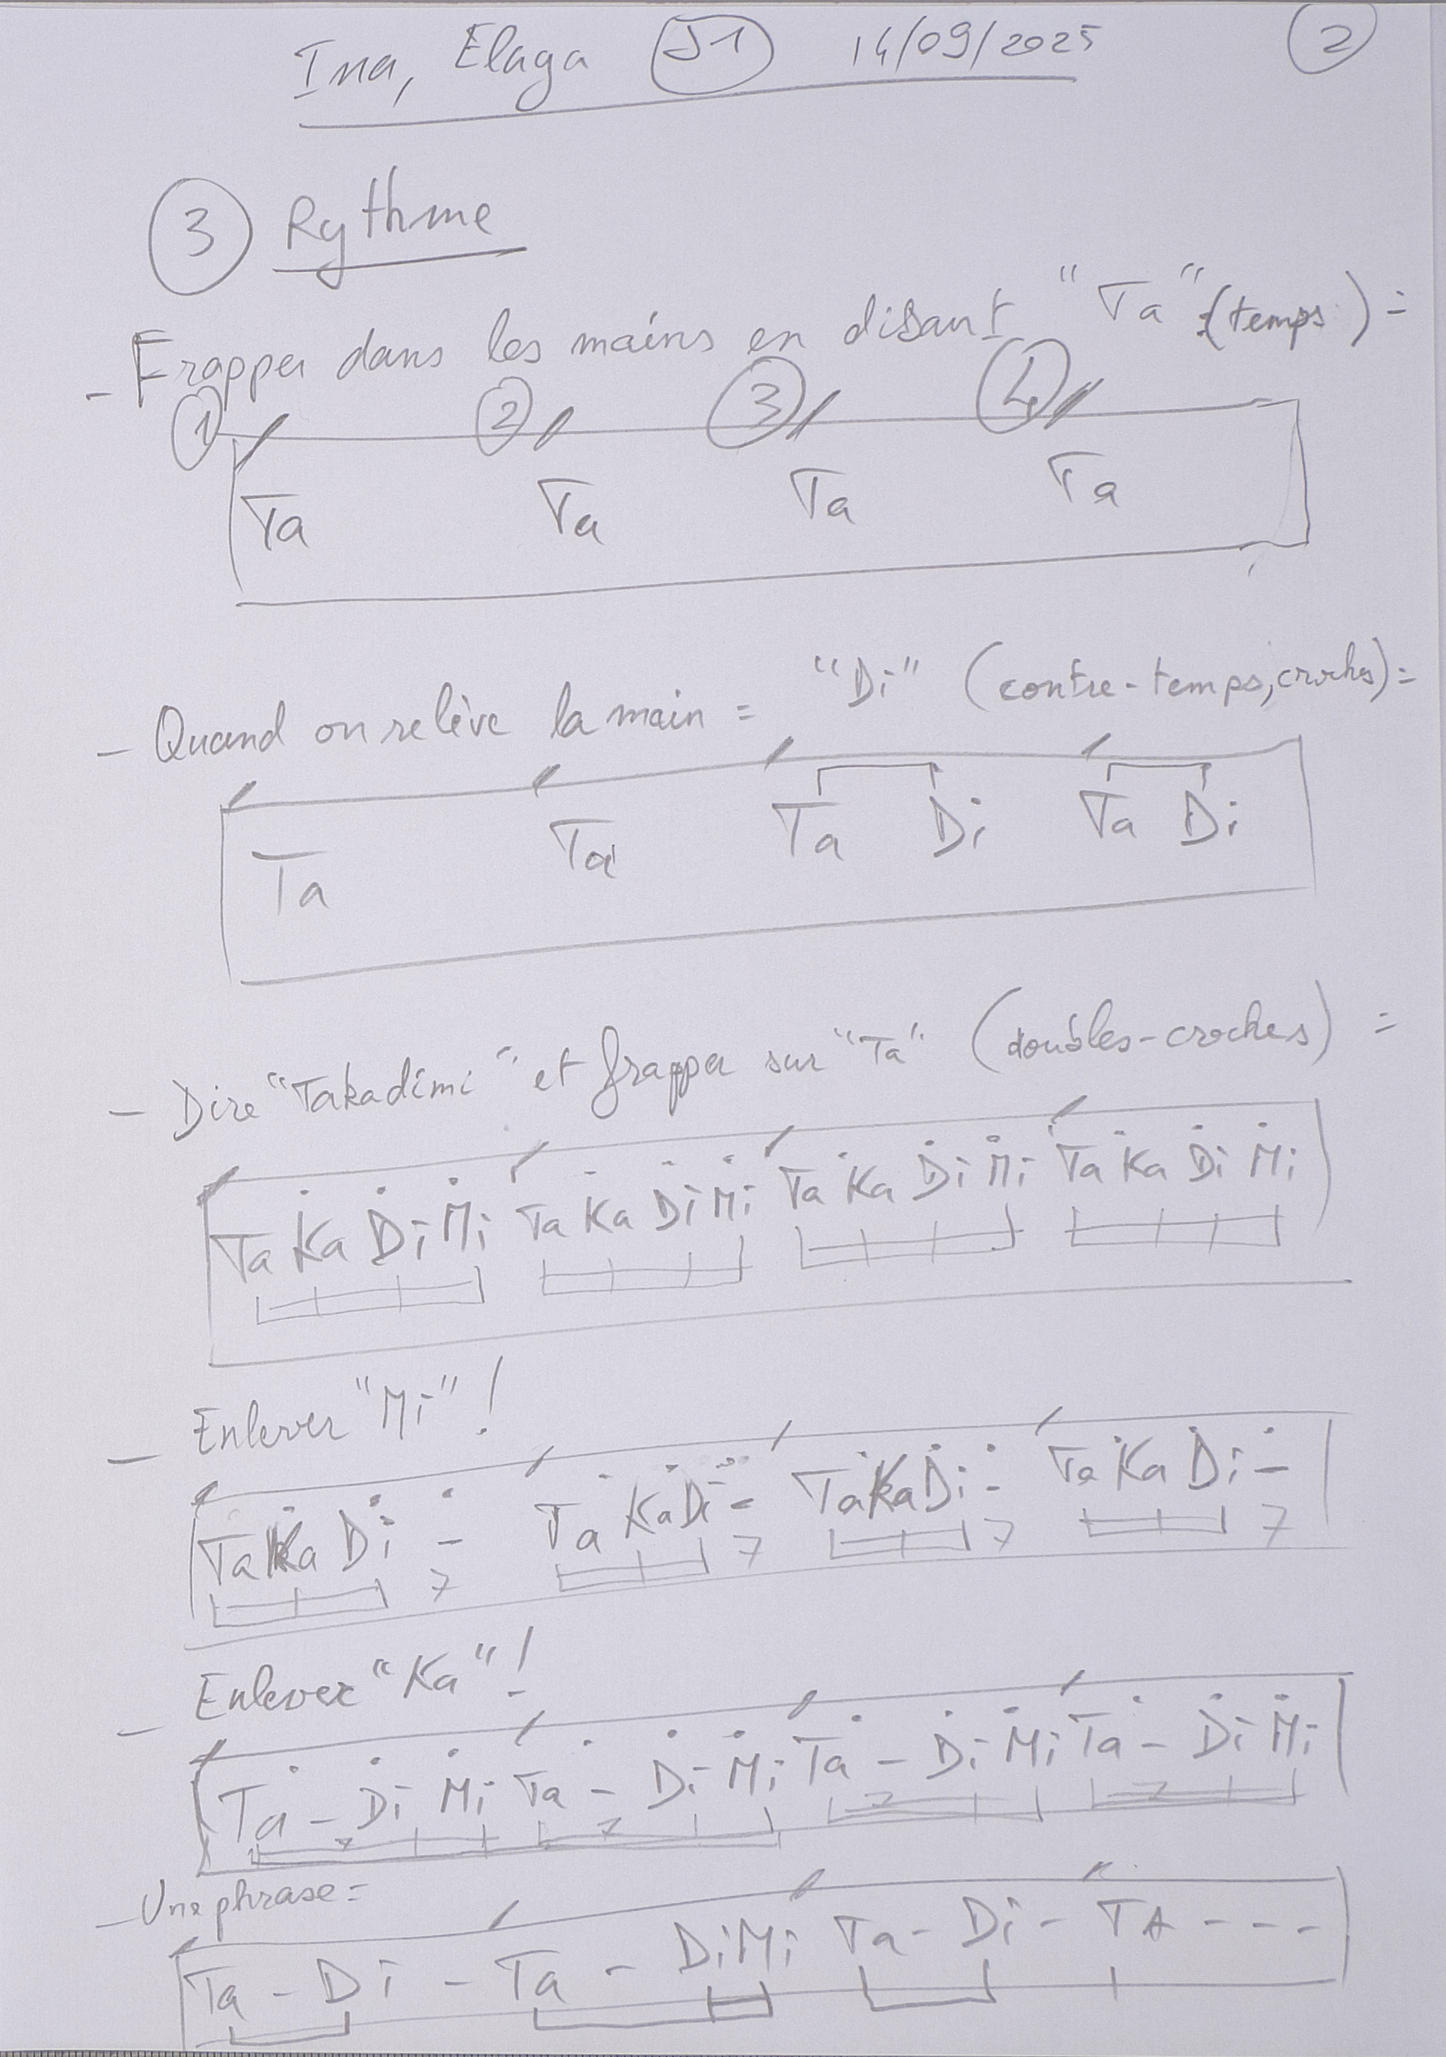 Ina, Elaga J1 14/09/2025 2
3 Rythme
- Frapper dans les mains en disant "Ta" (temps) =
1 2 3 4
Ta Ta Ta Ta
- Quand on relève la main = "Di" (contre-temps, croches) =
Ta Ta Ta Di Ta Di
- Dire "Takadimi" et frapper sur "Ta" (doubles-croches) =
Ta Ka Di Mi Ta Ka Di Mi Ta Ka Di Mi Ta Ka Di Mi
- Enlever "Mi" !
Ta Ka Di - Ta Ka Di - Ta Ka Di - Ta Ka Di -
7 7 7 7
- Enlever "Ka" !
Ta - Di Mi Ta - Di Mi Ta - Di Mi Ta - Di Mi
7 7 7 7
- Une phrase =
Ta - Di - Ta - Di Mi Ta - Di - TA - - -